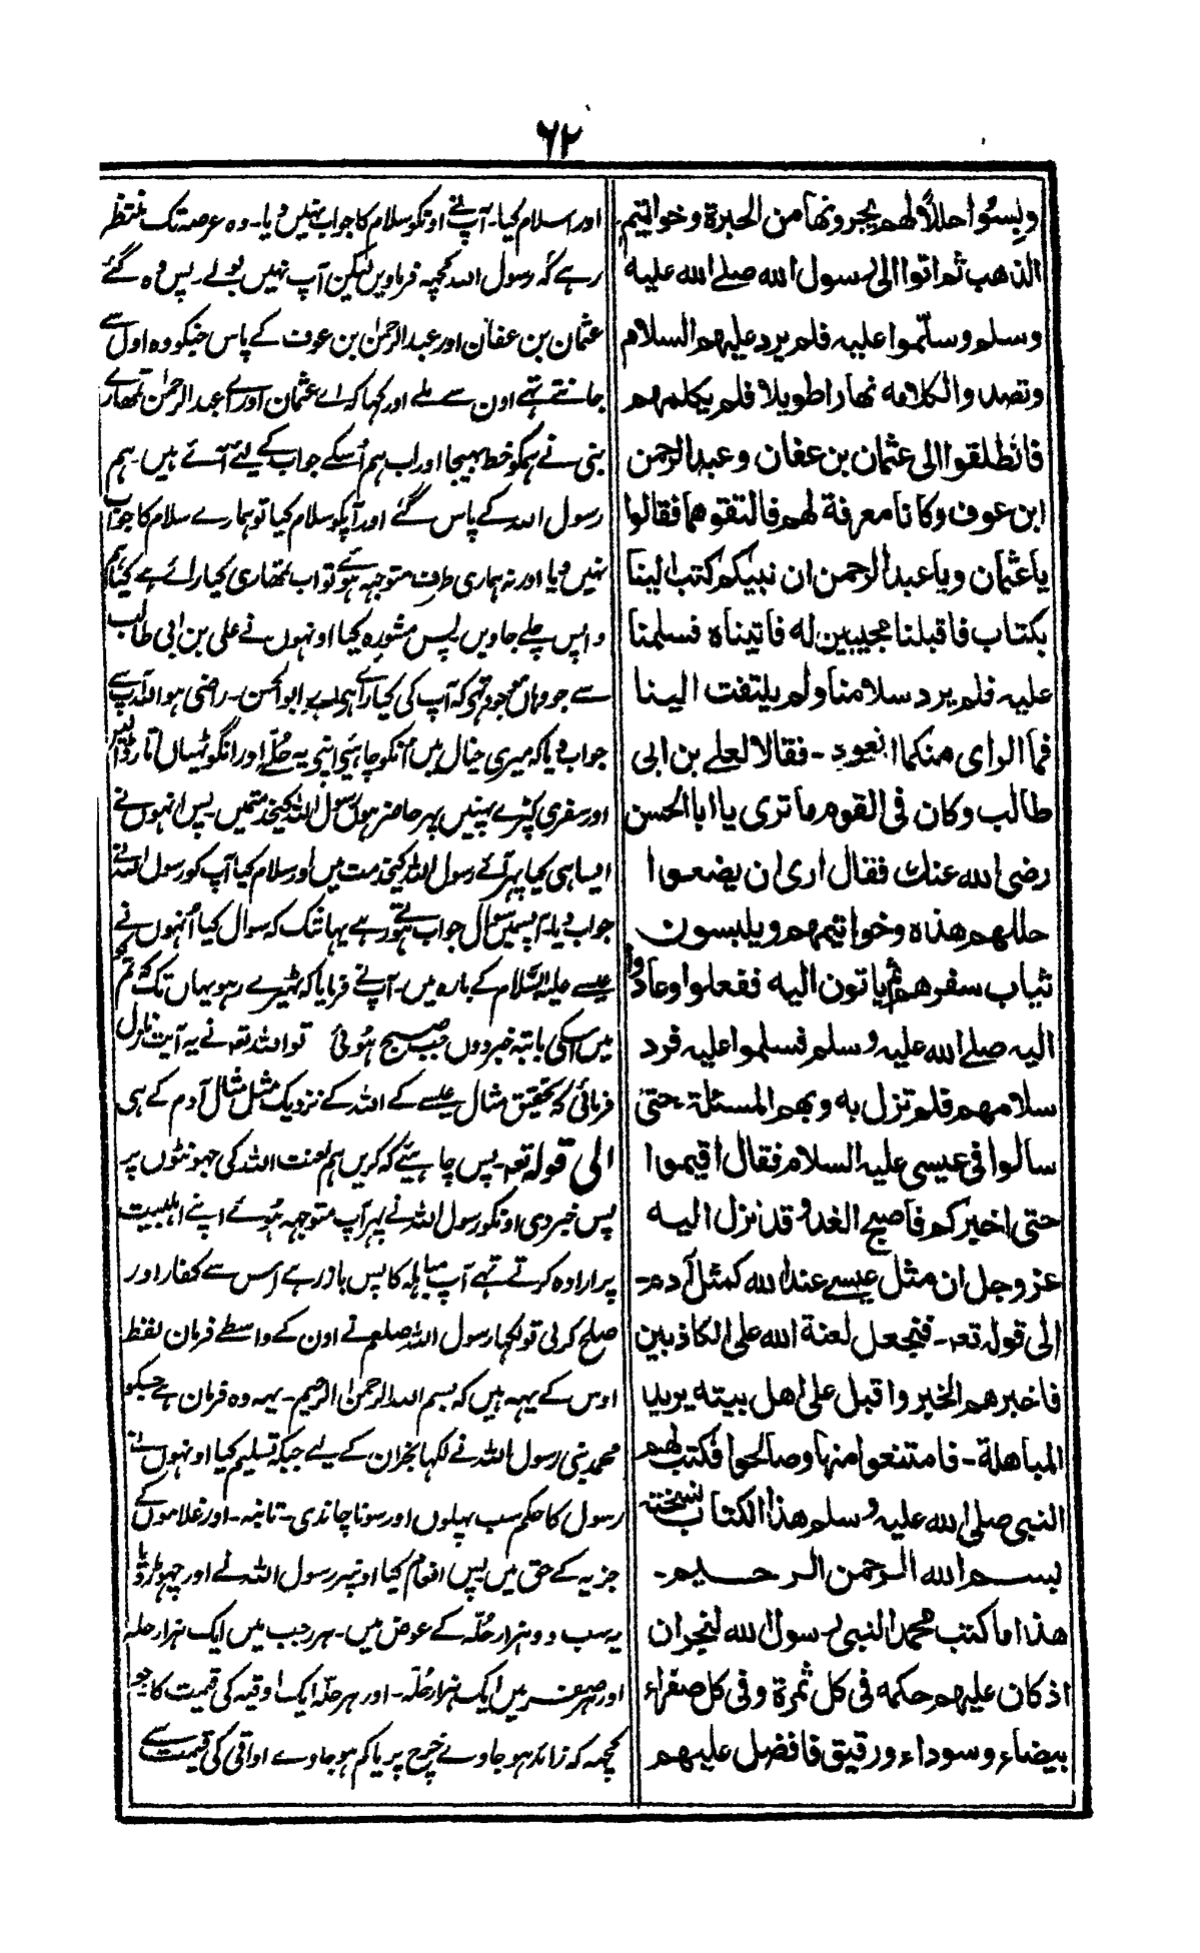 ٦٢
ولبسوا حللاً لهم يجرونها من الحبرة وخواتيم
الذهب ثم اتوا الى رسول الله صلے الله عليه
وسلم وسلّموا عليه فلم يرد عليهم السلام
وتصدوا لكلامه نهارا طويلا فلم يكلمهم
فانطلقوا الى عثمان بن عفان وعبد الرحمن
ابن عوف وكانا معرفة لهم فالتقوهما فقالوا
يا عثمان ويا عبد الرحمن ان نبيكم كتب الينا
بكتاب فاقبلنا مجيبين له فاتيناه فسلمنا
عليه فلم يرد سلامنا ولم يلتفت الينا
فما الراى منكما انعود - فقالا لعلے بن ابى
طالب وكان فى القوم ما ترى يا ابا الحسن
رضى الله عنك فقال ارى ان يضعوا
حللهم هذه وخواتيمهم ويلبسون
ثياب سفرهم ثم ياتون اليه ففعلوا وعادوا
اليه صلے الله عليه وسلم فسلموا عليه فرد
سلامهم فلم تزل به وبهم المسئلة حتىٰ
سالوا فى عيسى عليه السلام فقال اقيموا
حتى اخبركم فاصبح الغد وقد نزل اليه
عز وجل ان مثل عيسے عند الله كمثل آدم -
الى قوله تعہ - فنجعل لعنة الله على الكاذبين
فاخبرهم الخبر واقبل على اهل بيته يريد
المباهلة - فامتنعوا منها وصالحوا فكتب لهم
النبى صلى الله عليه وسلم هذا الكتاب نسخته
بسم الله الرحمن الرحيم -
هذا ما كتب محمد النبى رسول الله لنجران
اذ كان عليهم حكمه فى كل ثمرة وفى كل صفراء
بيضاء وسوداء ورقيق فافضل عليهم
اور سلام کیا - آپنے اونکو سلام کا جواب نہیں دیا - وہ عرصہ تک منتظر
رہے کہ رسول اللہ کچھہ فرماویں لیکن آپ نہیں بولے پس وہ گئے
عثمان بن عفان اور عبد الرحمٰن بن عوف کے پاس جنکو وہ اول سے
جانتے تہے اون سے ملے اور کہا کہ اے عثمان اور اے عبد الرحمٰن تمھارے
نبی نے ہمکو خط بہیجا اور اب ہم اُسکے جواب کے لیئے آئے ہیں - ہم
رسول اللہ کے پاس گئے اور آپکو سلام کیا تو ہمارے سلام کا جواب
نہیں دیا اور نہ ہماری طرف متوجہ ہوئے تو اب تمھاری کیا رائے ہے کیا ہم
واپس چلے جاویں پس مشورہ کیا اونہوں نے علی بن ابی طالب
سے جو وہاں موجود تہے کہ آپ کی کیا رائے ہے اے ابو الحسن - راضی ہو اللہ آپ سے
جواب دیا کہ میری خیال میں انکو چاہئے اپنی یہ حُلّے اور انگوٹہیاں اتار ڈالیں
اور سفری کپڑے پہنیں پہر حاضر ہوں رسول اللہ کیخدمتمیں پس انہوں نے
ایسا ہی کیا پہر آئے رسول اللہ کیخدمت میں اور سلام کیا آپ کو رسول اللہ نے
جواب دیا - پسمیں سوال جواب ہوتے رہے یہانتک کہ سوال کیا اُنہوں نے
عیسے علیہ السّلام کے بارہ میں - آپنے فرمایا کہ ٹہیرے رہو یہاں تک کہ تمکو
میں اسکی بابتہ خبر دوں جب صبح ہُوئی تو اللہ تعہ نے یہ آیت نازل
فرمائی کہ تحقیق مثال عیسے کے اللہ کے نزدیک مثل مثال آدم کے ہی
الی قولہ تعہ - پس چاہیئے کہ کریں ہم لعنت اللہ کی جہوٹوں پر
پس خبر دی اونکو رسول اللہ نے پہر آپ متوجہ ہُوئے اپنے اہلبیت
پر ارادہ کرتے تہے آپ مباہلہ کا پس باز رہے اس سے کفار اور
صلح کرلی تو لکہا رسول اللہ صلعم نے اون کے واسطے فرمان لفظ
اوس کے یہہ ہیں کہ بسم اللہ الرحمٰن الرحیم - یہہ وہ فرمان ہے جسکو
محمد نبی رسول اللہ نے لکہا نجران کے لیے جبکہ تسلیم کیا اونہوں نے
رسول کا حکم سب پہلوں اور سونا چاندی - تانبہ - اور غلاموں کے
جزیہ کے حق میں پس انعام کیا اونپر رسول اللہ نے اور چہوڑ دیا
یہ سب دو ہزار حُلّہ کے عوض میں - ہر رجب میں ایک ہزار حلہ
اور ہر صفر میں ایک ہزار حُلّہ - اور ہر حلّہ ایک اوقیہ کی قیمت کا جو
کچہہ کہ زائد ہو جاوے خرج پر یا کم ہو جاوے اواقی کی قیمت سے